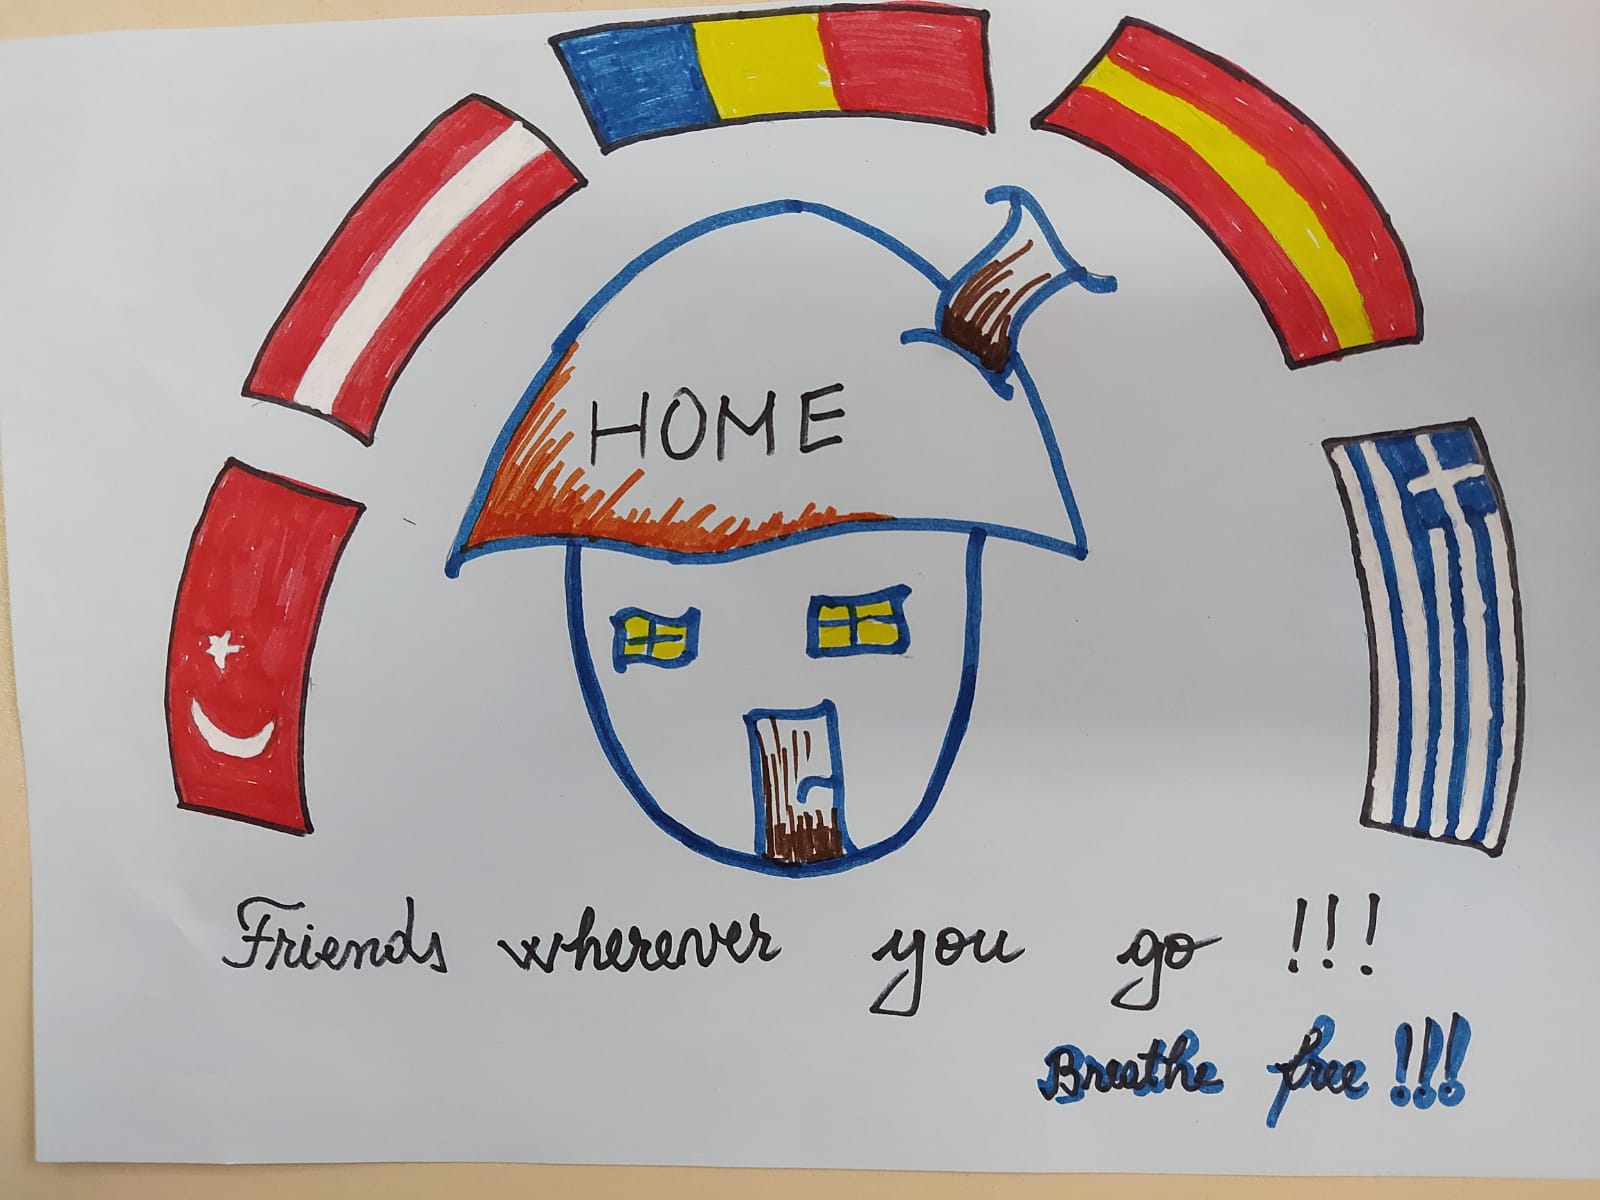 HOME
Friends wherever you go !!!
Breathe free!!!